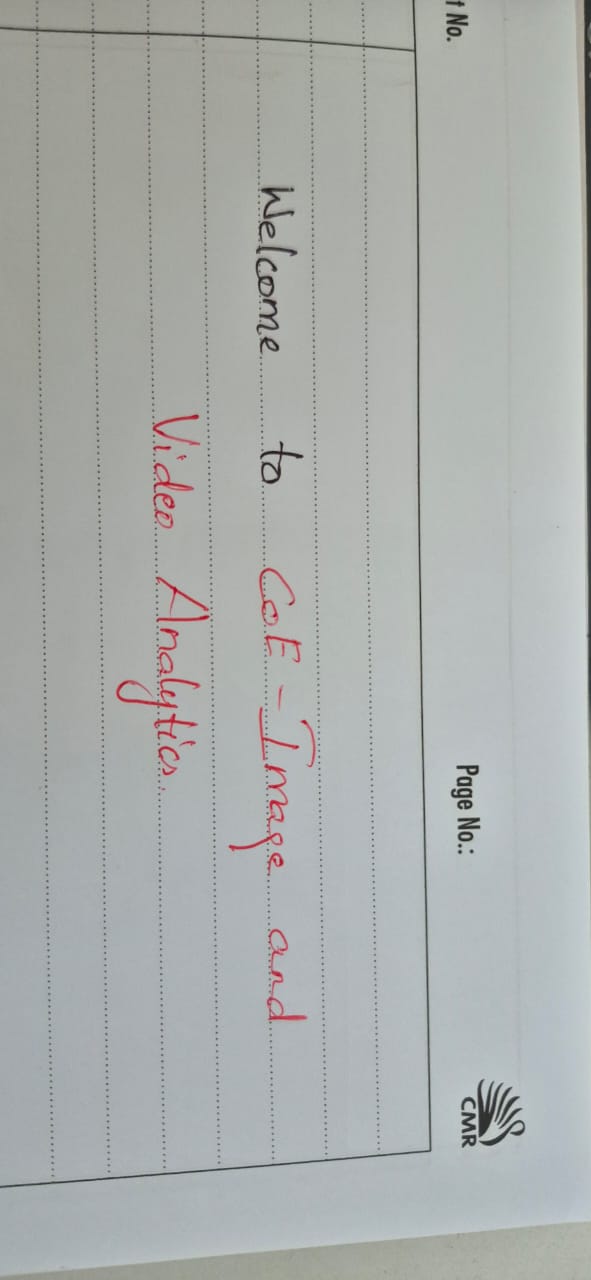 t No.
Page No.:
CMR
Welcome to CoE - Image and
Video Analytics.